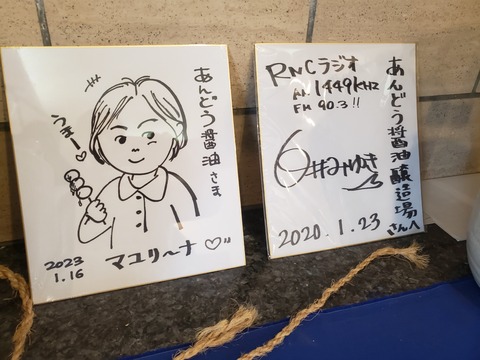 あんどう醤油さま
うまー♡
2023
1.16
マユリ〜ナ♡
RNCラジオ
AM 1449KHZ
FM 90.3!!
あんどう醤油醸造場さんへ
みゆき
2020.1.23